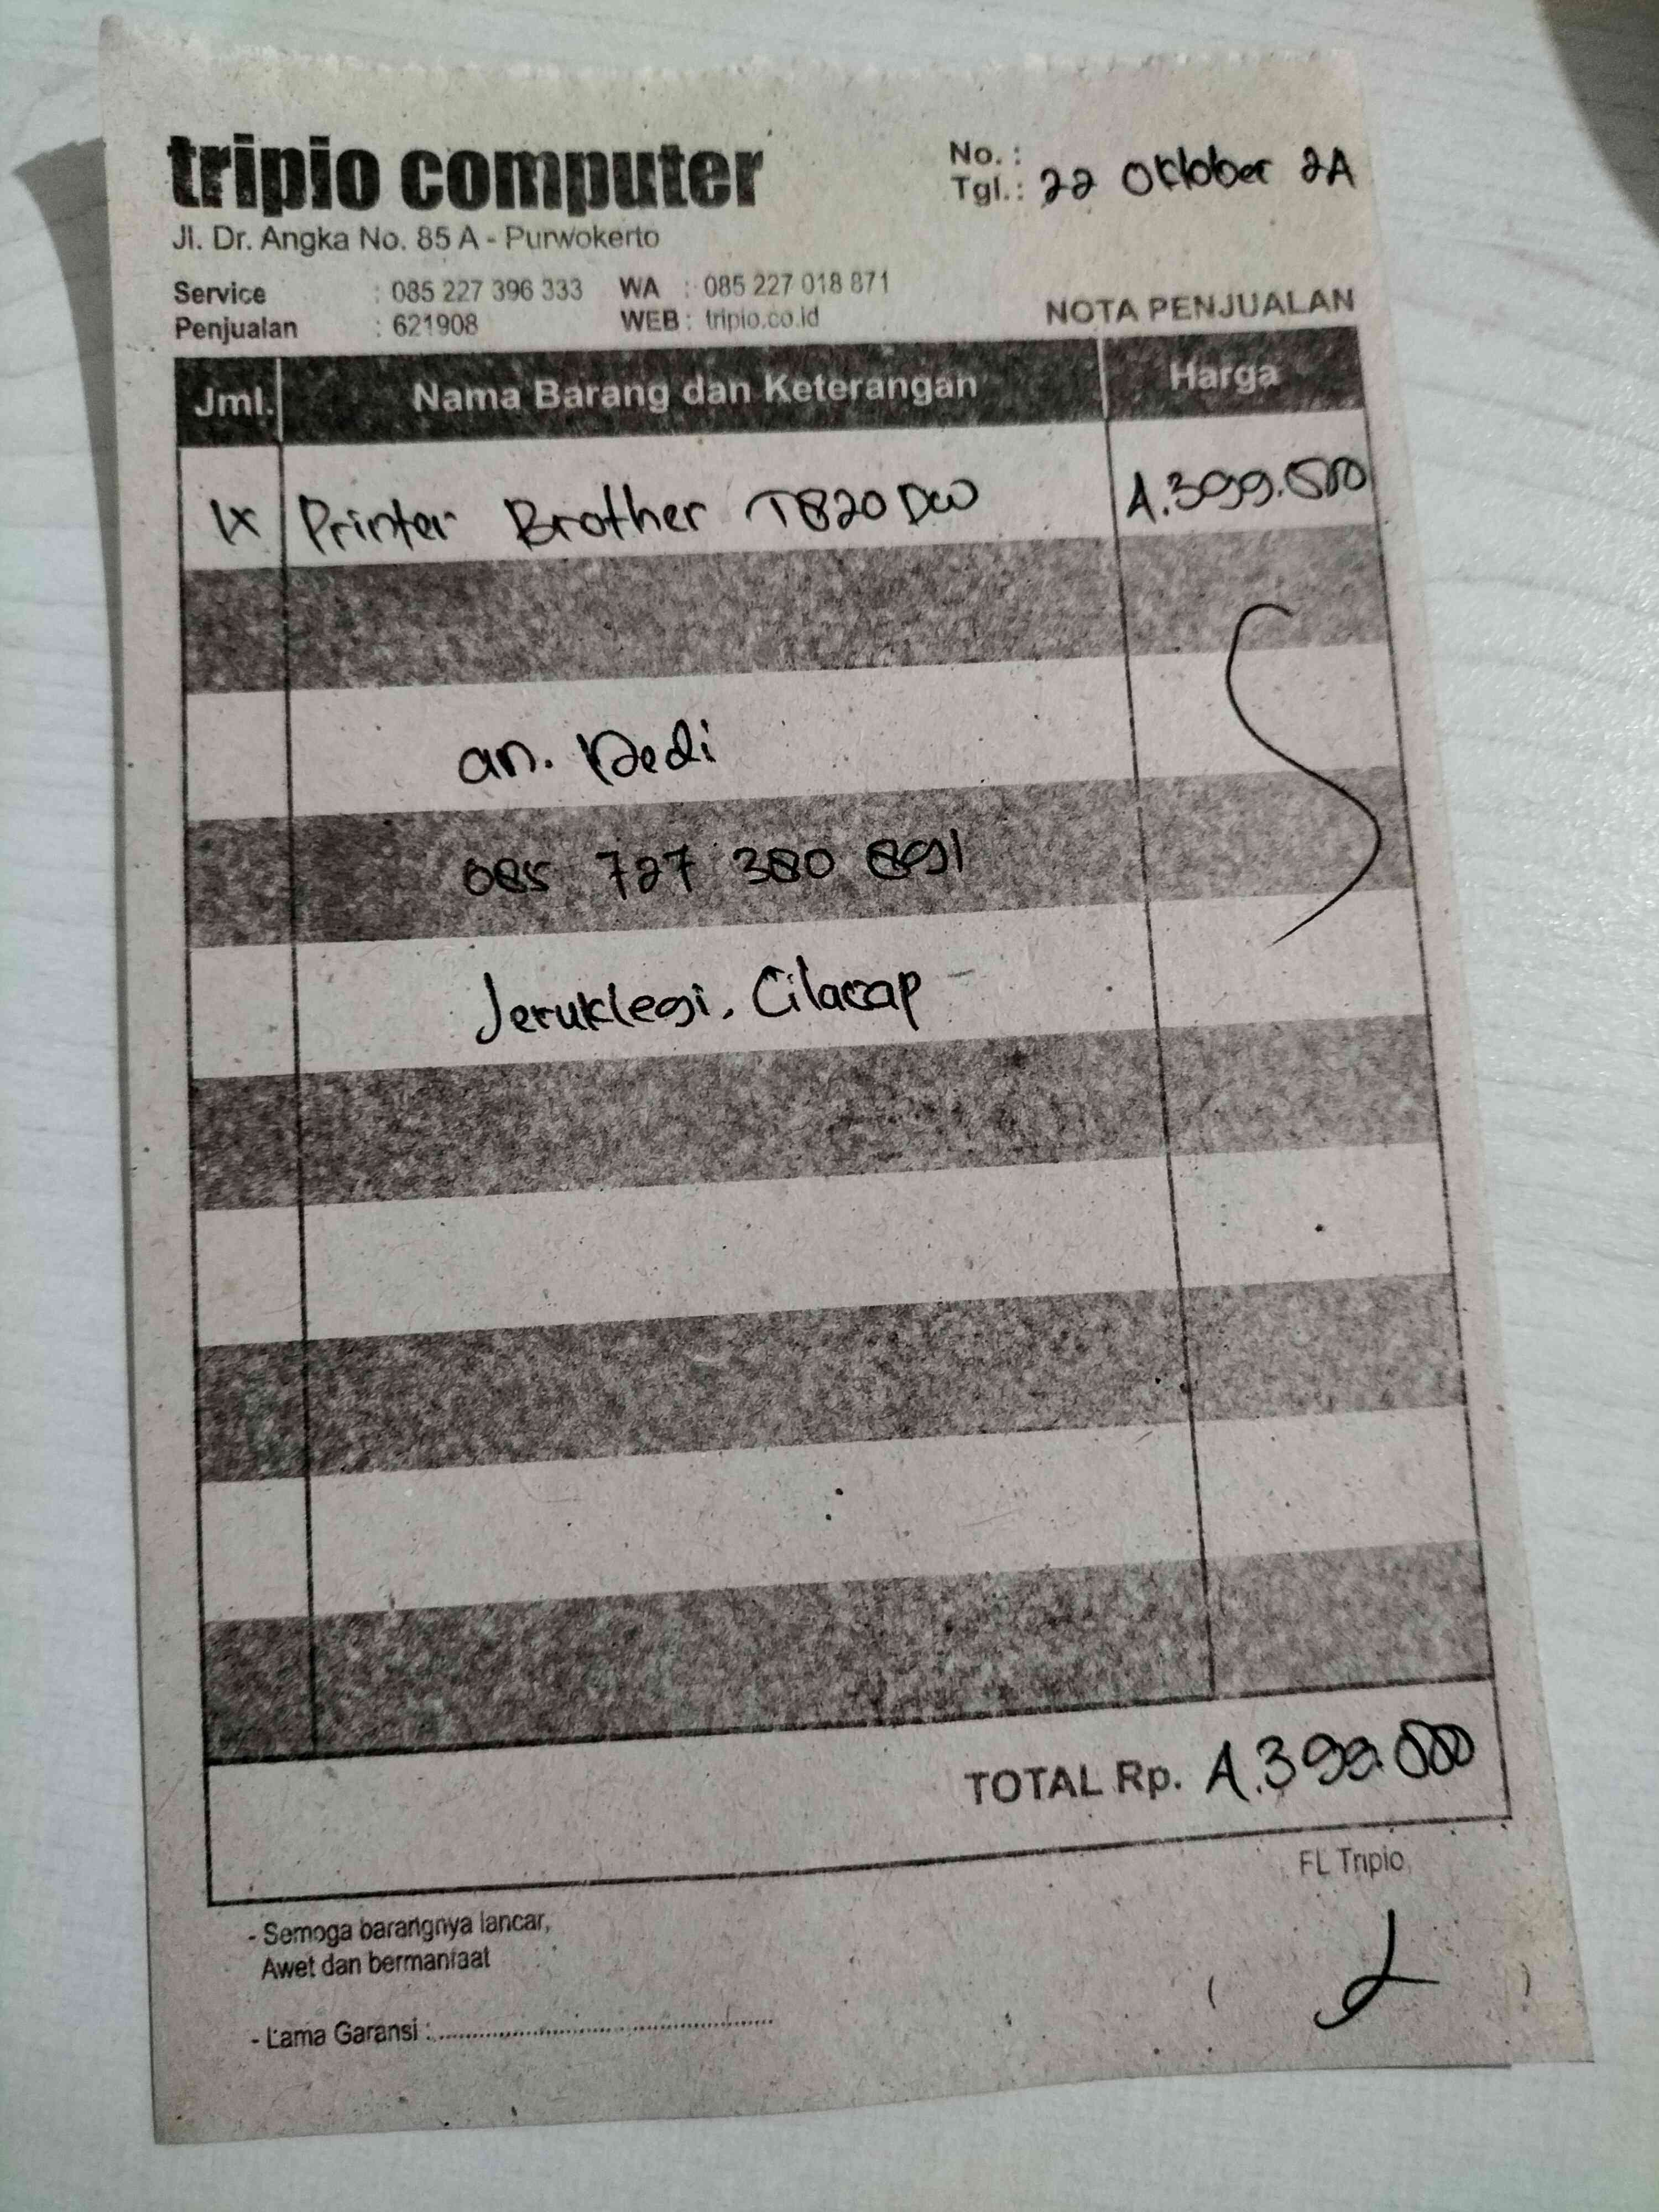 tripio computer
Jl. Dr. Angka No. 85 A - Purwokerto
No. :
Tgl. : 22 Oktober 24
Service : 085 227 396 333 WA : 085 227 018 871
Penjualan : 621908 WEB : tripio.co.id
NOTA PENJUALAN
Jml. Nama Barang dan Keterangan Harga
1x Printer Brother T820 DW 4.399.000
an. Dedi
085 727 380 891
Jeruklegi, Cilacap
TOTAL Rp. 4.399.000
FL Tripio
- Semoga barangnya lancar,
Awet dan bermanfaat
- Lama Garansi : ..........................................
( )